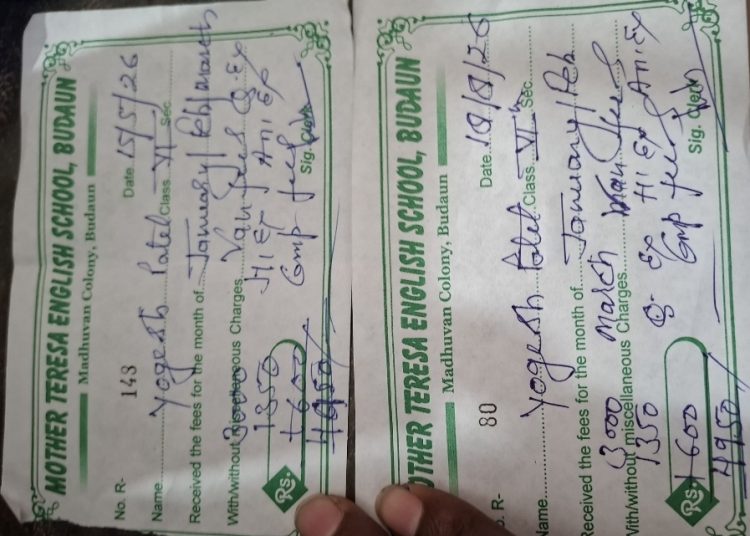 MOTHER TERESA ENGLISH SCHOOL, BUDAUN
Madhuvan Colony, Budaun
No. R- 143 Date 15/5/26
Name Yogesh Patel Class VI Sec.
Received the fees for the month of January/Feb/March
With/without miscellaneous Charges Van fees Q. Ex
3000 H1 Ex An. Ex
1350 Cmp fees
+600 Sig. Clerk
Rs. 4950/
OTHER TERESA ENGLISH SCHOOL, BUDAUN
Madhuvan Colony, Budaun
o. R- 80 Date
Name Yogesh Patel Class VI Sec.
Received the fees for the month of January/Feb
March Van fees
With/without miscellaneous Charges
3000 Q. Ex H1 Ex An. Ex
1350 Cmp fees
+600 Sig. Clerk
Rs. 4950/